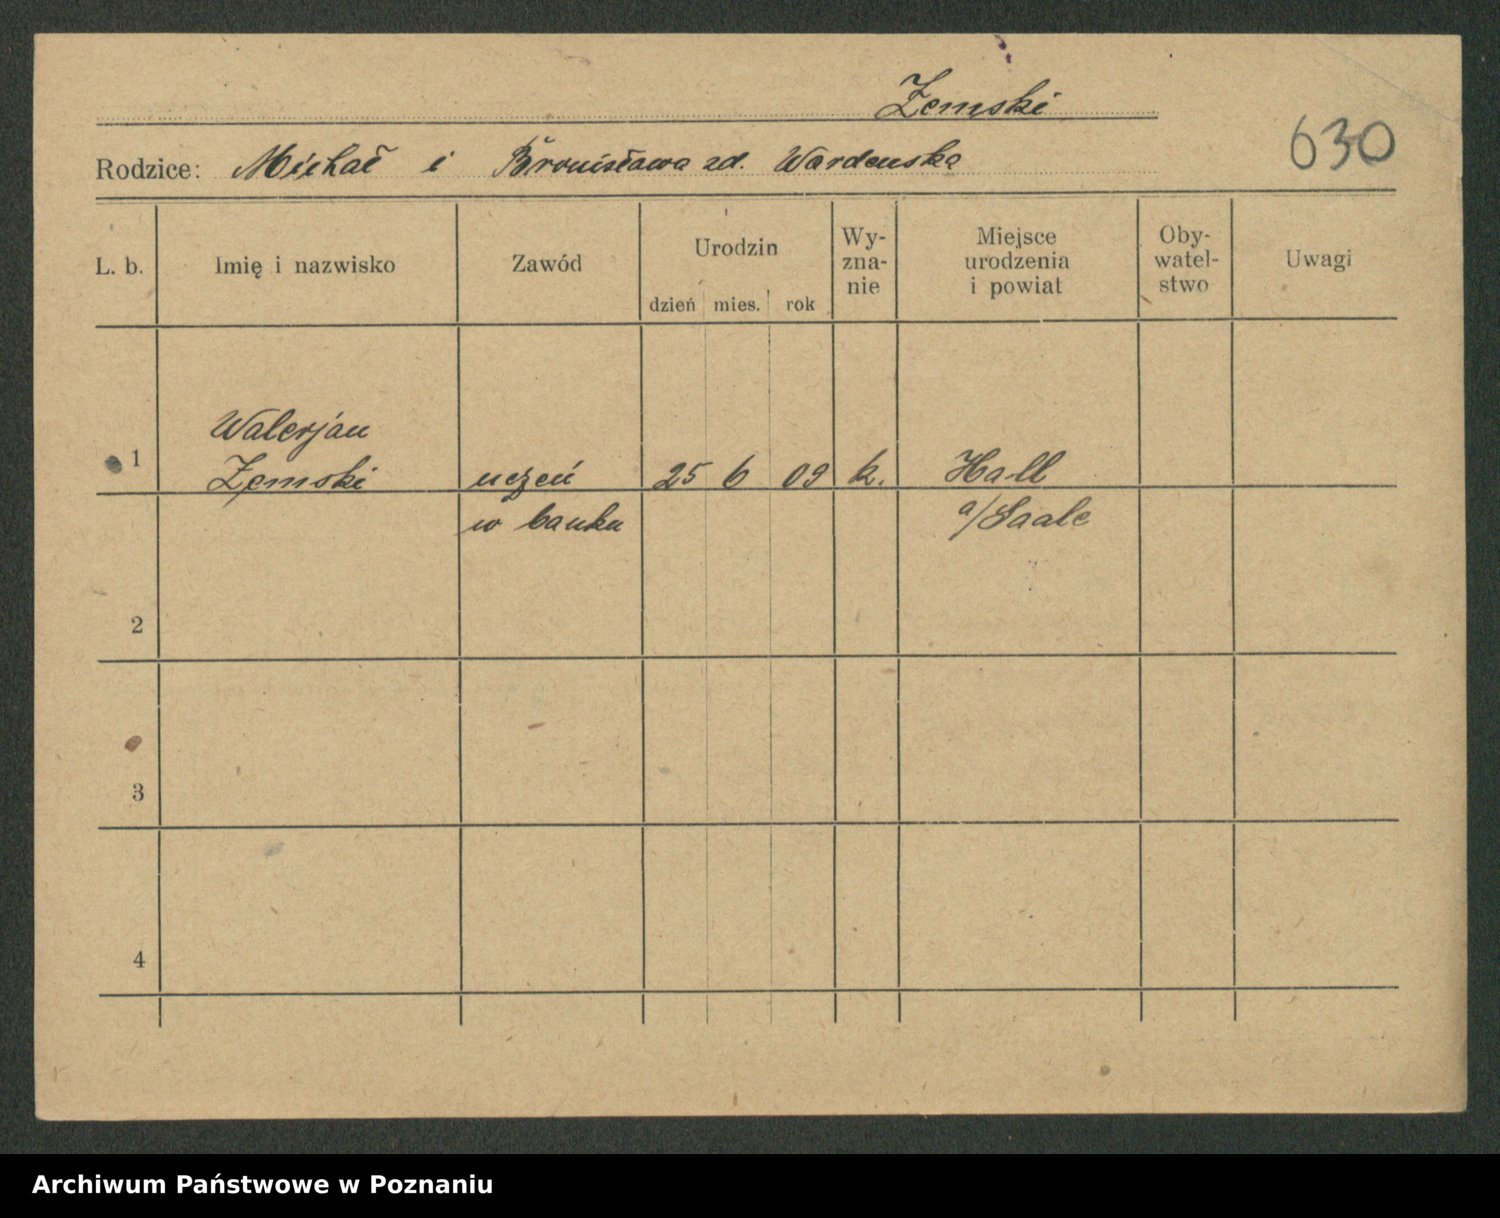 Zemski
630
Rodzice: Michał i Bronisława zd. Wardenska
L. b. Imię i nazwisko Zawód Urodzin Wy-zna-nie Miejsce urodzenia i powiat Oby-watel-stwo Uwagi
dzień mies. rok
Walerjan
1 Zemski uczeń 25 6 09 k. Hall
w banku a/Saale
2
3
4
Archiwum Państwowe w Poznaniu